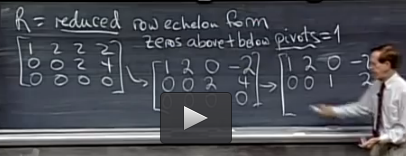 R = reduced row echelon form
zeros above + below pivots = 1
1 2 2 2
0 0 2 4
0 0 0 0
1 2 0 -2
0 0 2 4
0
1 2 0 -2
0 0 1